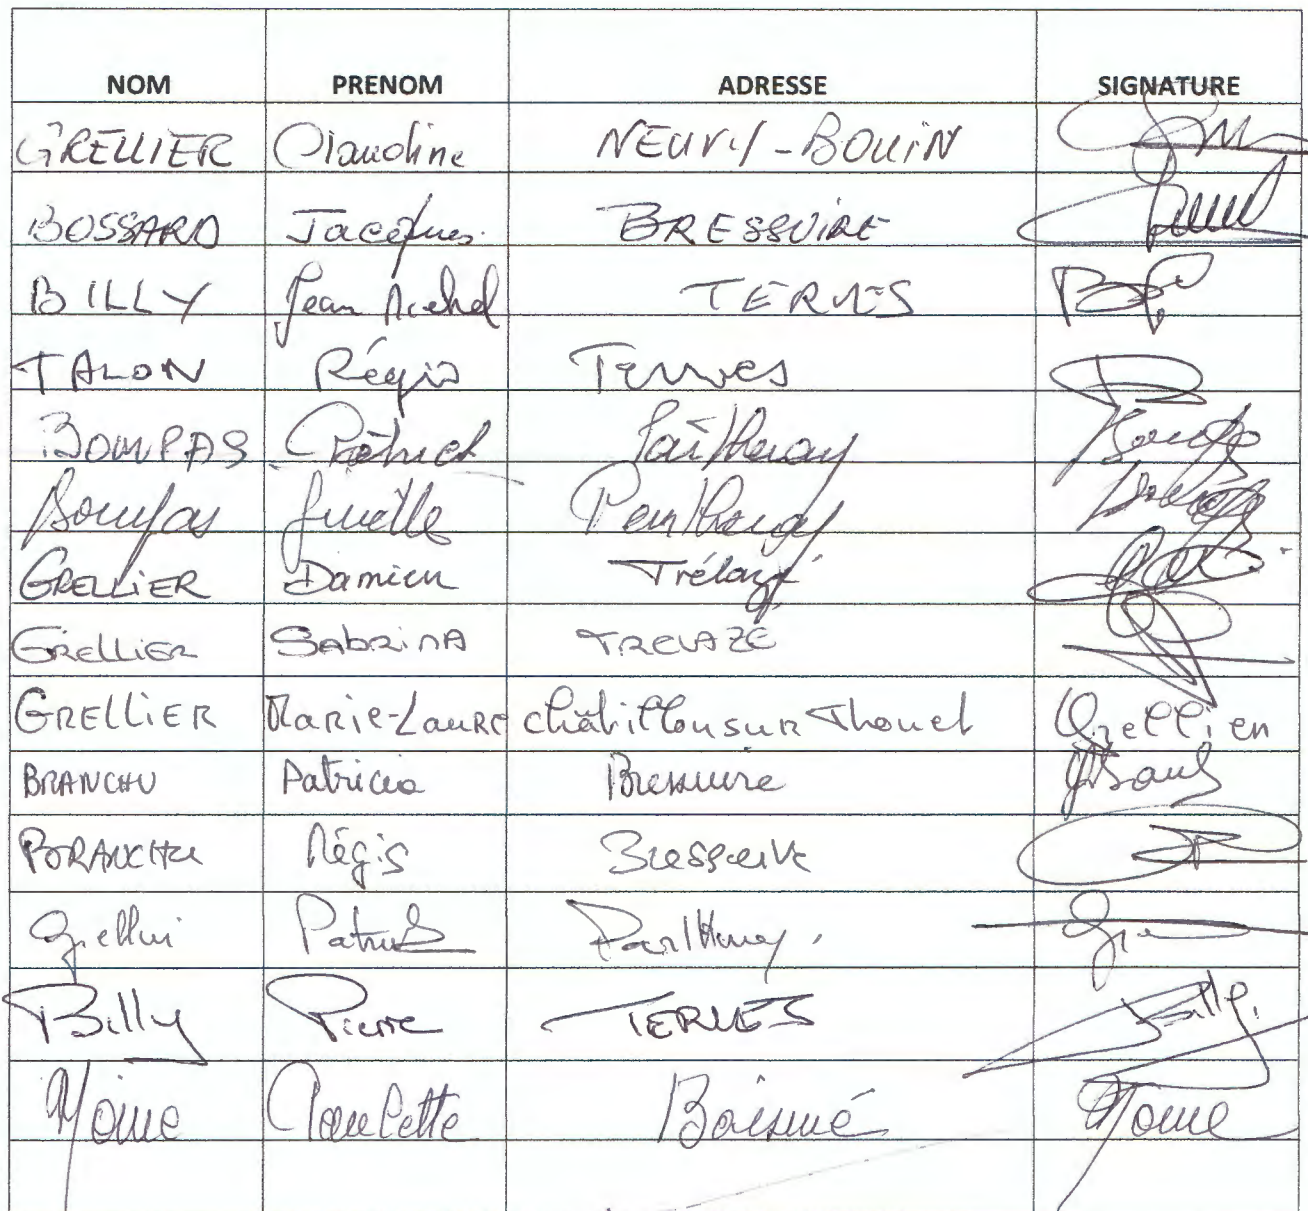 NOM PRENOM ADRESSE SIGNATURE
GRELLIER Claudine NEUVY-BOUIN
BOSSARD Jacques BRESSUIRE
BILLY Jean Michel TERVES
TALON Régis Terves
BOMPAS Patrick Parthenay
Bompas Parthenay
GRELLIER Damien Trélazé
GRELLIER SABRINA TRELAZE
GRELLIER MARIE-LAURE châtillon sur Thouet Grellier
BRANCHU Patricia Bressuire
BRANCHU Régis Bressuire
Grellier Patrick Parthenay
Billy Pierre TERVES Billy
Boismé